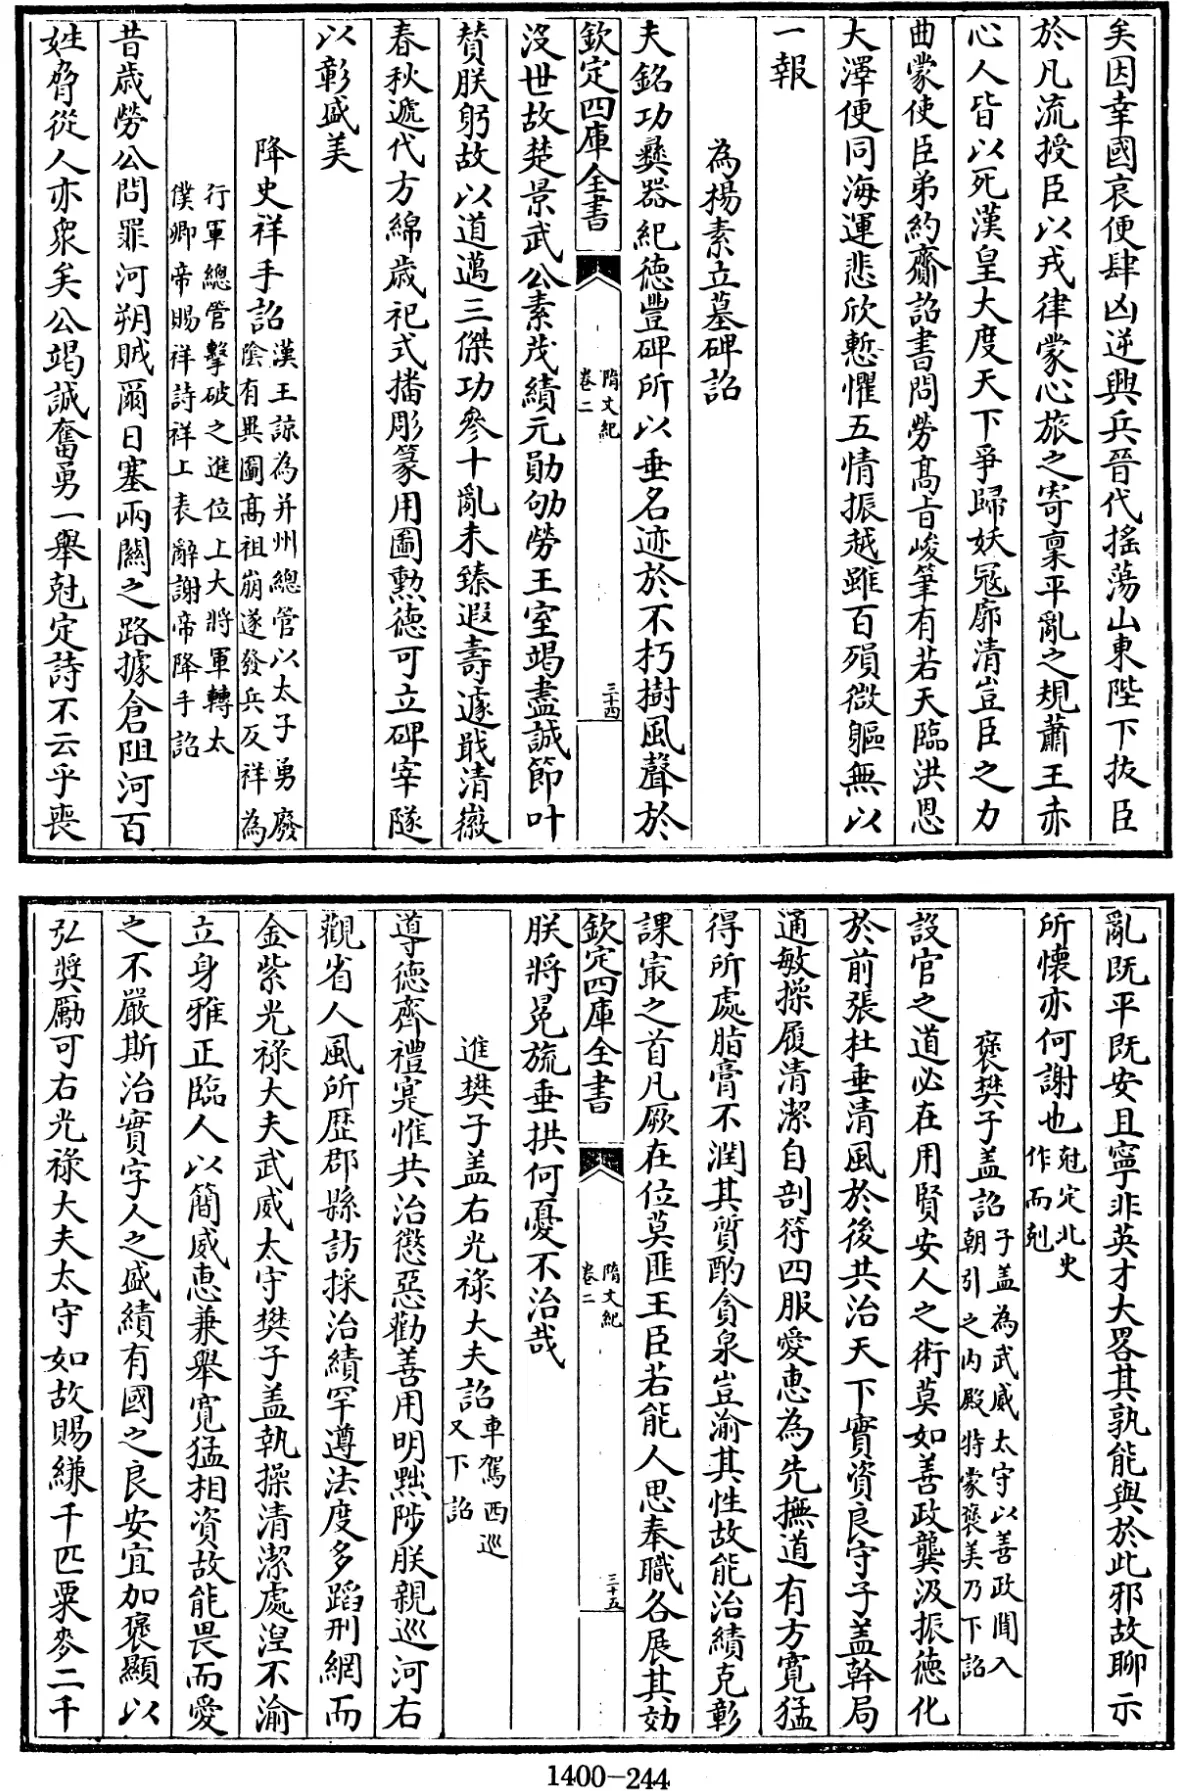 矣因幸國哀便肆凶逆興兵晉代揺蕩山東陛下拔臣
於凡流授臣以戎律蒙心旅之寄稟平亂之規蕭王赤
心人皆以死漢皇大度天下爭歸妖冦廓清豈臣之力
曲蒙使臣弟約齎詔書問勞髙旨峻筆有若天臨洪恩
大澤便同海運悲欣慙懼五情振越雖百殞微軀無以
一報
為楊素立墓碑詔
夫銘功彝器紀德豐碑所以垂名迹於不朽樹風聲於
欽定四庫全書
隋文紀
卷二
三十四
沒世故楚景武公素茂績元勛劬勞王室竭盡誠節叶
賛朕躬故以道邁三傑功參十亂未臻遐壽遽戢清徽
春秋遞代方綿歲祀式播彫篆用圖勲德可立碑宰隧
以彰盛美
降史祥手詔
漢王諒為并州總管以太子勇廢
陰有異圖髙祖崩遂發兵反祥為
行軍總管擊破之進位上大將軍轉太
僕卿帝賜祥詩祥上表辭謝帝降手詔
昔歲勞公問罪河朔賊爾日塞兩關之路據倉阻河百
姓脅從人亦衆矣公竭誠奮勇一舉尅定詩不云乎喪
亂既平既安且寧非英才大畧其孰能與於此邪故聊示
所懷亦何謝也
尅定北史
作而剋
褒樊子盖詔
子盖為武威太守以善政聞入
朝引之内殿特蒙褒美乃下詔
設官之道必在用賢安人之術莫如善政龔汲振德化
於前張杜垂清風於後共治天下實資良守子盖幹局
通敏操履清潔自剖符四服愛惠為先撫道有方寛猛
得所處脂膏不潤其質酌貪泉豈渝其性故能治績克彰
課㝡之首凡厥在位莫匪王臣若能人思奉職各展其効
欽定四庫全書
隋文紀
卷二
三十五
朕將冕旒垂拱何憂不治哉
進樊子盖右光祿大夫詔
車駕西巡
又下詔
導德齊禮寔惟共治懲惡勸善用明黜陟朕親巡河右
觀省人風所歴郡縣訪採治績罕遵法度多蹈刑網而
金紫光祿大夫武威太守樊子盖執操清潔處湟不渝
立身雅正臨人以簡威惠兼舉寛猛相資故能畏而愛
之不嚴斯治實字人之盛績有國之良安宜加褒顯以
弘奬勵可右光祿大夫太守如故賜縑千匹粟麥二千
1400-244